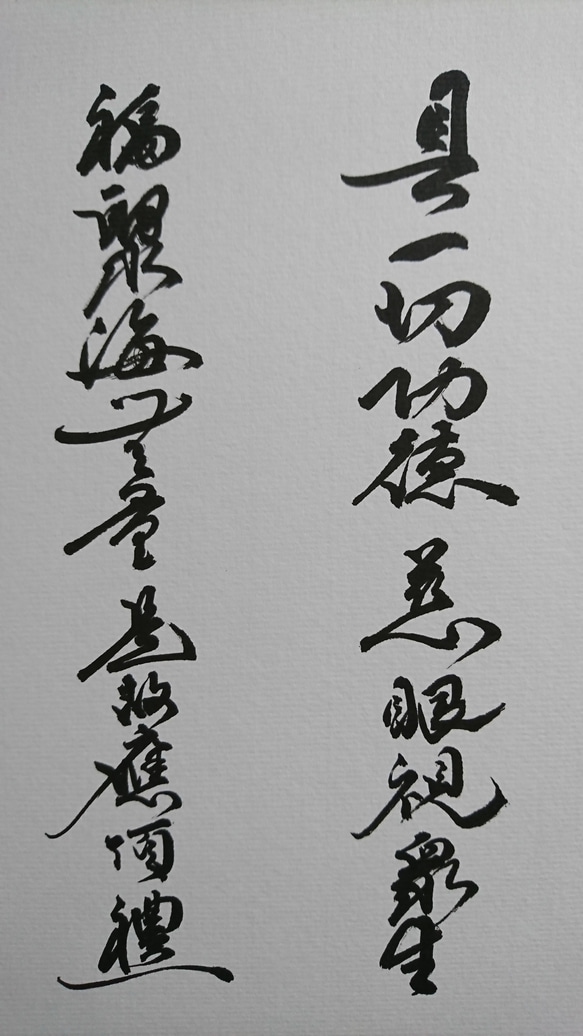 具一切功德慈眼視眾生
福聚海無量是故應頂禮